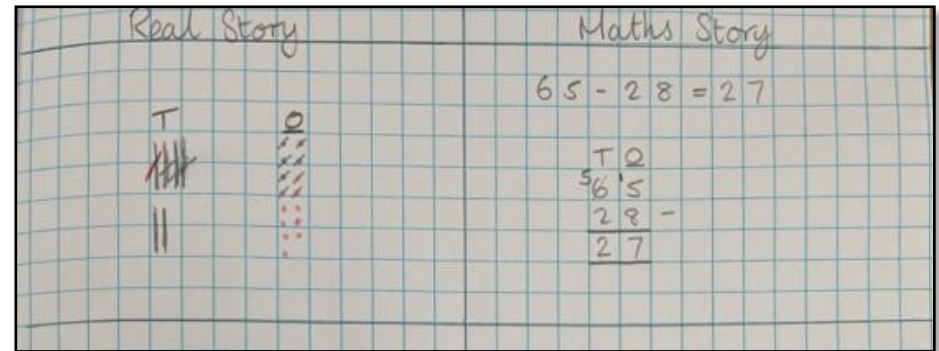 Real Story
Maths Story
65-28=27
T O
T O
⁵6 ¹5
2 8 -
2 7